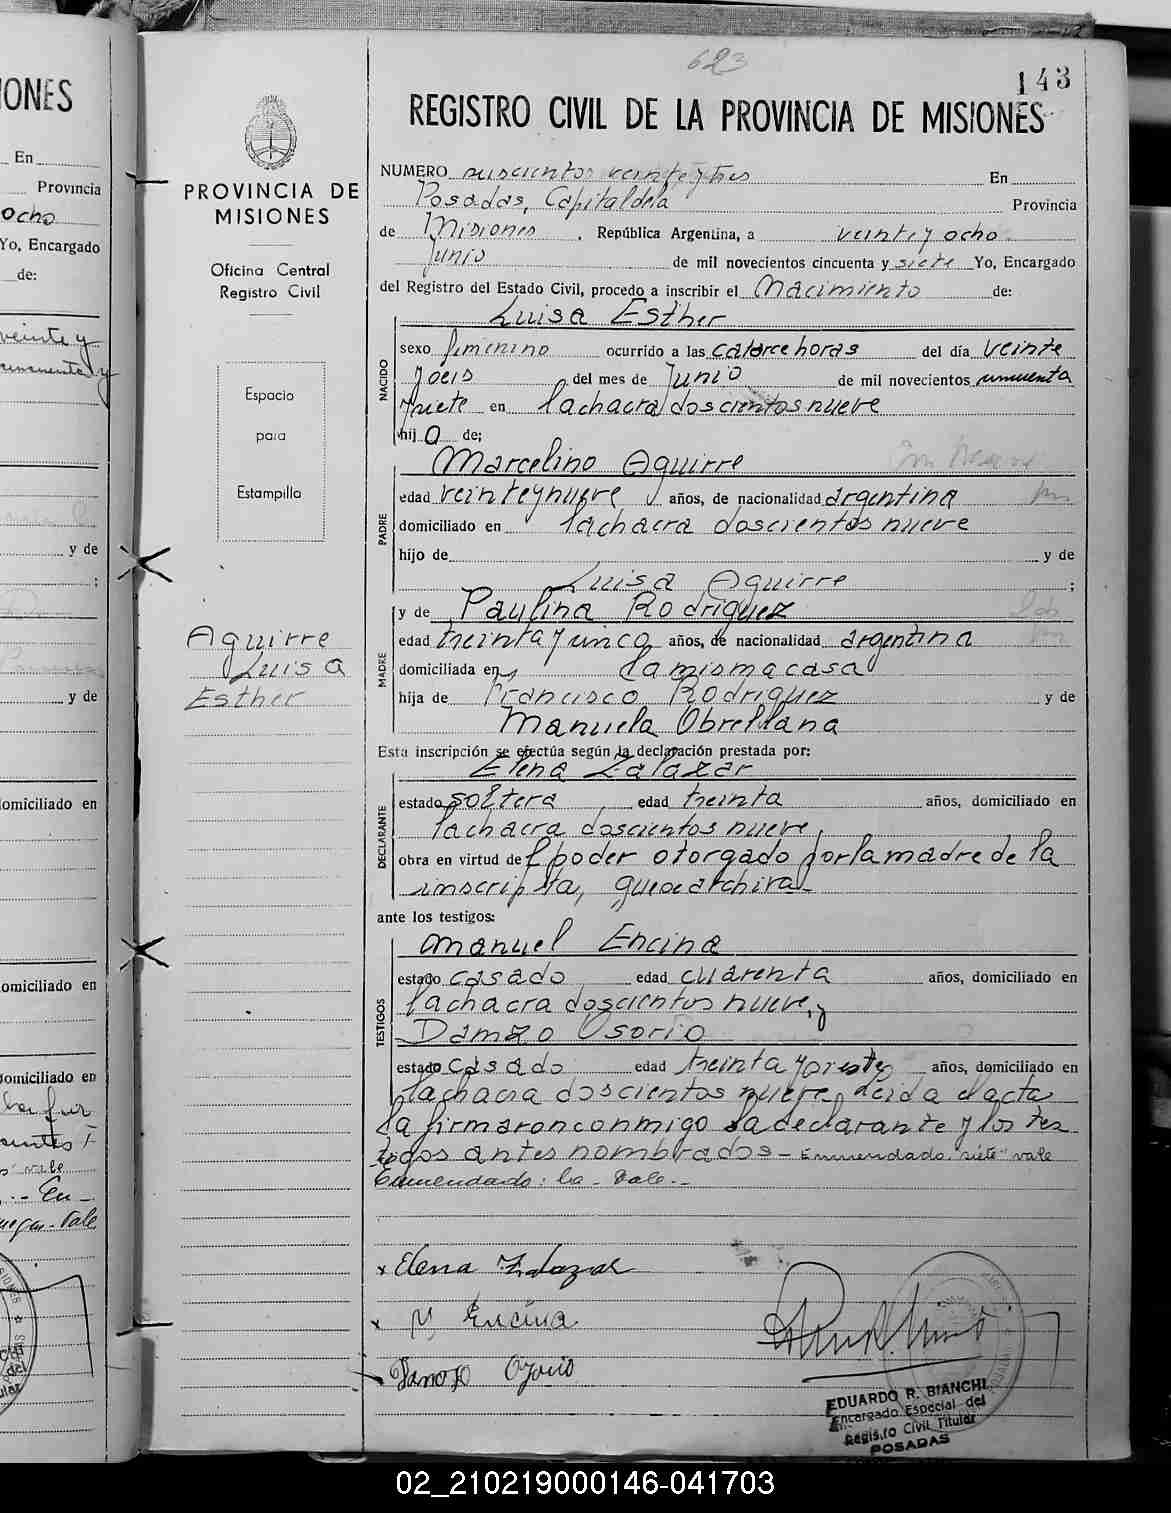 IONES
En
Provincia
ocho
Yo, Encargado
de:
veinte y
y de
y de
domiciliado en
omiciliado en
domiciliado en
vale
En
Vale
623
143
REGISTRO CIVIL DE LA PROVINCIA DE MISIONES
PROVINCIA DE
MISIONES
Oficina Central
Registro Civil
Espacio
para
Estampilla
Aguirre
Luisa
Esther
NUMERO seiscientos veinte y tres En
Posadas, Capital de la Provincia
de Misiones, República Argentina, a veinte y ocho
Junio de mil novecientos cincuenta y siete Yo, Encargado
del Registro del Estado Civil, procedo a inscribir el Nacimiento de:
Luisa Esther
NACIDO
sexo femenino ocurrido a las catorce horas del día veinte
y seis del mes de Junio de mil novecientos cincuenta
y siete en la chacra doscientos nueve
hij a de;
Marcelino Aguirre
PADRE
edad veinte y nueve años, de nacionalidad argentina
domiciliado en la chacra doscientos nueve
hijo de y de
Luisa Aguirre ;
y de Paulina Rodriguez
MADRE
edad treinta y cinco años, de nacionalidad argentina
domiciliada en la misma casa
hija de Francisco Rodriguez y de
Manuela Obrellana
Esta inscripción se efectúa según la declaración prestada por:
Elena Zalazar
DECLARANTE
estado soltera edad treinta años, domiciliado en
la chacra doscientos nueve,
obra en virtud de l poder otorgado por la madre de la
inscripta, que se archiva-
ante los testigos:
Manuel Encina
TESTIGOS
estado casado edad cuarenta años, domiciliado en
la chacra doscientos nueve, y
Damazo Osorio
estado casado edad treinta y siete años, domiciliado en
la chacra doscientos nueve, leida el acta
la firmaron conmigo la declarante y los tes
tigos antes nombrados - Enmendado: "siete" vale
Enmendado: la - Vale.-
x Elena Zalazar
x M Encina
Osorio
EDUARDO R. BIANCHI
Encargado Especial del
Registro Civil Titular
POSADAS
02_210219000146-041703